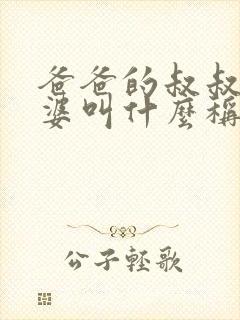 爸爸的叔叔
婆叫什麼稱
公子輕歌